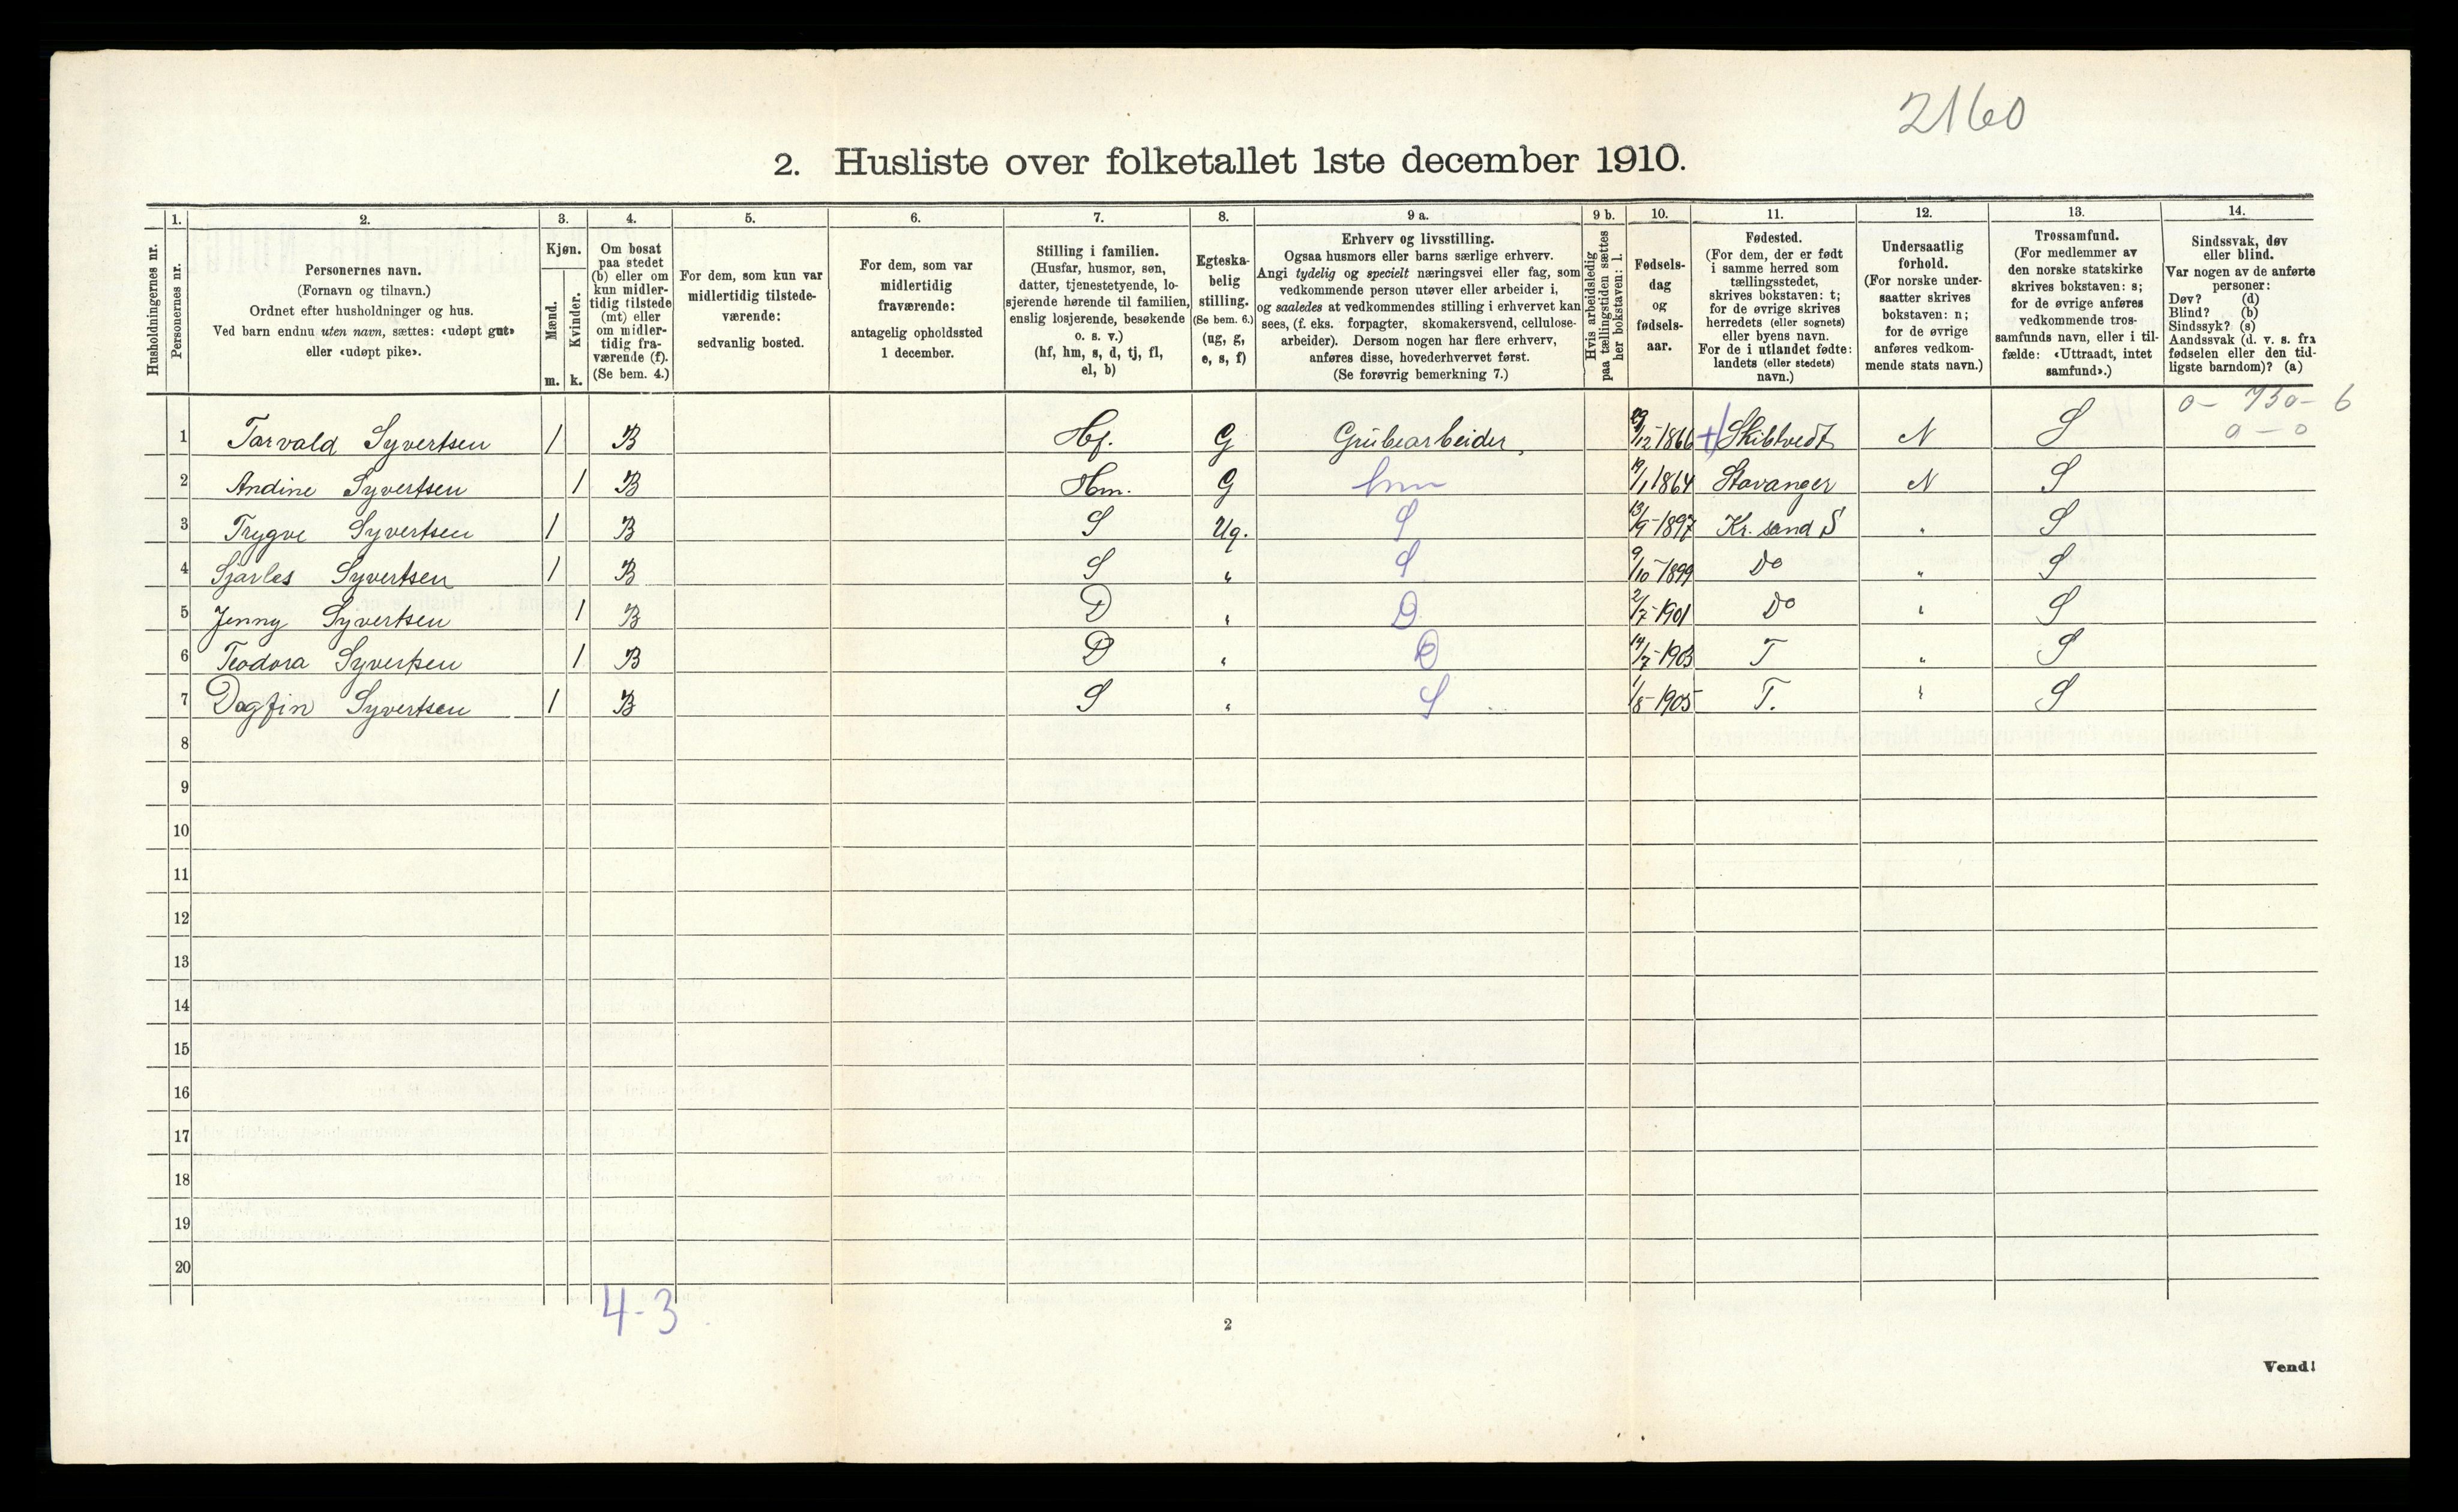 2160
2. Husliste over folketallet 1ste december 1910.
Husholdningernes nr.
1. Personernes nr.
2. Personernes navn.
(Fornavn og tilnavn.)
Ordnet efter husholdninger og hus.
Ved barn endnu uten navn, sættes: «udøpt gut»
eller «udøpt pike».
3. Kjøn.
Mænd. m.
Kvinder. k.
4. Om bosat
paa stedet
(b) eller om
kun midler-
tidig tilstede
(mt) eller
om midler-
tidig fra-
værende (f).
(Se bem. 4.)
5. For dem, som kun var
midlertidig tilstede-
værende:
sedvanlig bosted.
6. For dem, som var
midlertidig
fraværende:
antagelig opholdssted
1 december.
7. Stilling i familien.
(Husfar, husmor, søn,
datter, tjenestetyende, lo-
sjerende hørende til familien,
enslig losjerende, besøkende
o. s. v.)
(hf, hm, s, d, tj, fl,
el, b)
8. Egteska-
belig
stilling.
(Se bem. 6.)
(ug, g,
e, s, f)
9 a. Erhverv og livsstilling.
Ogsaa husmors eller barns særlige erhverv.
Angi tydelig og specielt næringsvei eller fag, som
vedkommende person utøver eller arbeider i,
og saaledes at vedkommendes stilling i erhvervet kan
sees, (f. eks. forpagter, skomakersvend, cellulose-
arbeider). Dersom nogen har flere erhverv,
anføres disse, hovederhvervet først.
(Se forøvrig bemerkning 7.)
9 b. Hvis arbeidsledig
paa tællingstiden sættes
her bokstaven: l.
10. Fødsels-
dag
og
fødsels-
aar.
11. Fødested.
(For dem, der er født
i samme herred som
tællingsstedet,
skrives bokstaven: t;
for de øvrige skrives
herredets (eller sognets)
eller byens navn.
For de i utlandet fødte:
landets (eller stedets)
navn.)
12. Undersaatlig
forhold.
(For norske under-
saatter skrives
bokstaven: n;
for de øvrige
anføres vedkom-
mende stats navn.)
13. Trossamfund.
(For medlemmer av
den norske statskirke
skrives bokstaven: s;
for de øvrige anføres
vedkommende tros-
samfunds navn, eller i til-
fælde: «Uttraadt, intet
samfund».)
14. Sindssvak, døv
eller blind.
Var nogen av de anførte
personer:
Døv? (d)
Blind? (b)
Sindssyk? (s)
Aandssvak (d. v. s. fra
fødselen eller den tid-
ligste barndom)? (a)
0 - 730 - 6
0 - 0
1 Torvald Syvertsen 1 B Hf. G Grubearbeider 29/12-1866 + Skibtvedt N S
2 Andine Syvertsen 1 B Hm. G hm 19/1 1864 Stavanger N S
3 Trygve Syvertsen 1 B S Ug. S 13/9-1897 Kr. sand S " S
4 Sjarles Syvertsen 1 B S " S 9/10-1899 Do " S
5 Jenny Syvertsen 1 B D " D 2/7-1901 Do " S
6 Teodora Syvertsen 1 B D " D 14/7-1903 T " S
7 Dagfin Syvertsen 1 B S " S 1/8-1905 T. " S
8
9
10
11
12
13
14
15
16
17
18
19
20
4-3
2
Vend!